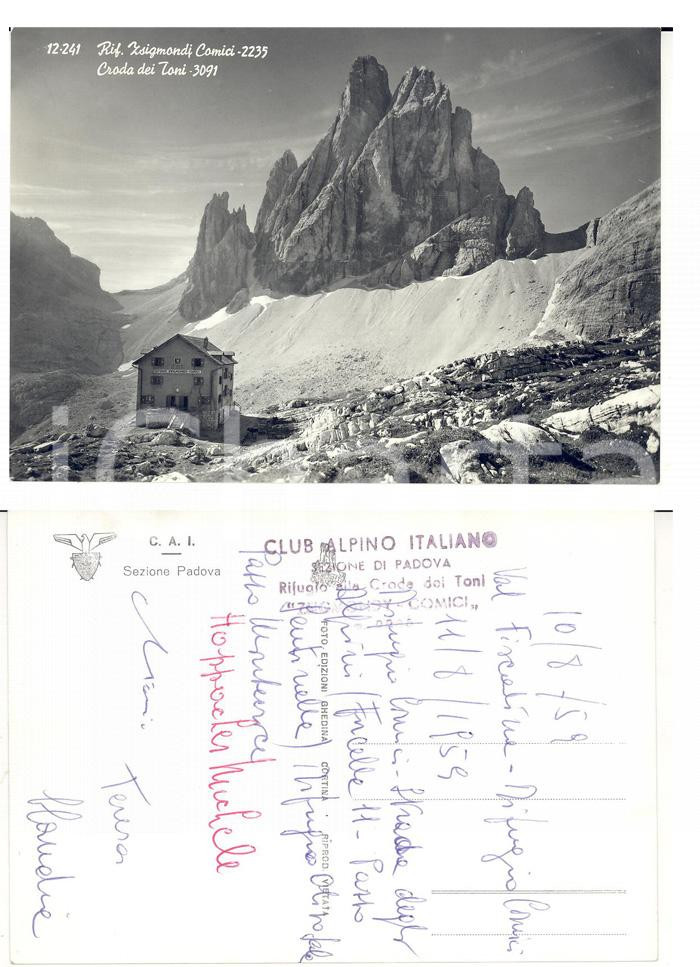 12-241 Rif. Zsigmondj Comici - 2235
Croda dei Toni - 3091
C. A. I.
Sezione Padova
CLUB ALPINO ITALIANO
SEZIONE DI PADOVA
Rifugio alla Croda dei Toni
COMICI„
FOTO, EDIZIONI GHEDINA CORTINA - RIPROD. VIETATA
10/8/59
Val Fiscalina - Rifugio Comici
11/8/1959
Rifugio Comici - Strada degli
Alpini (Forcella 11 - Passo
Sentinella) Rifugio
Passo
Michele
Teresa
Claudia